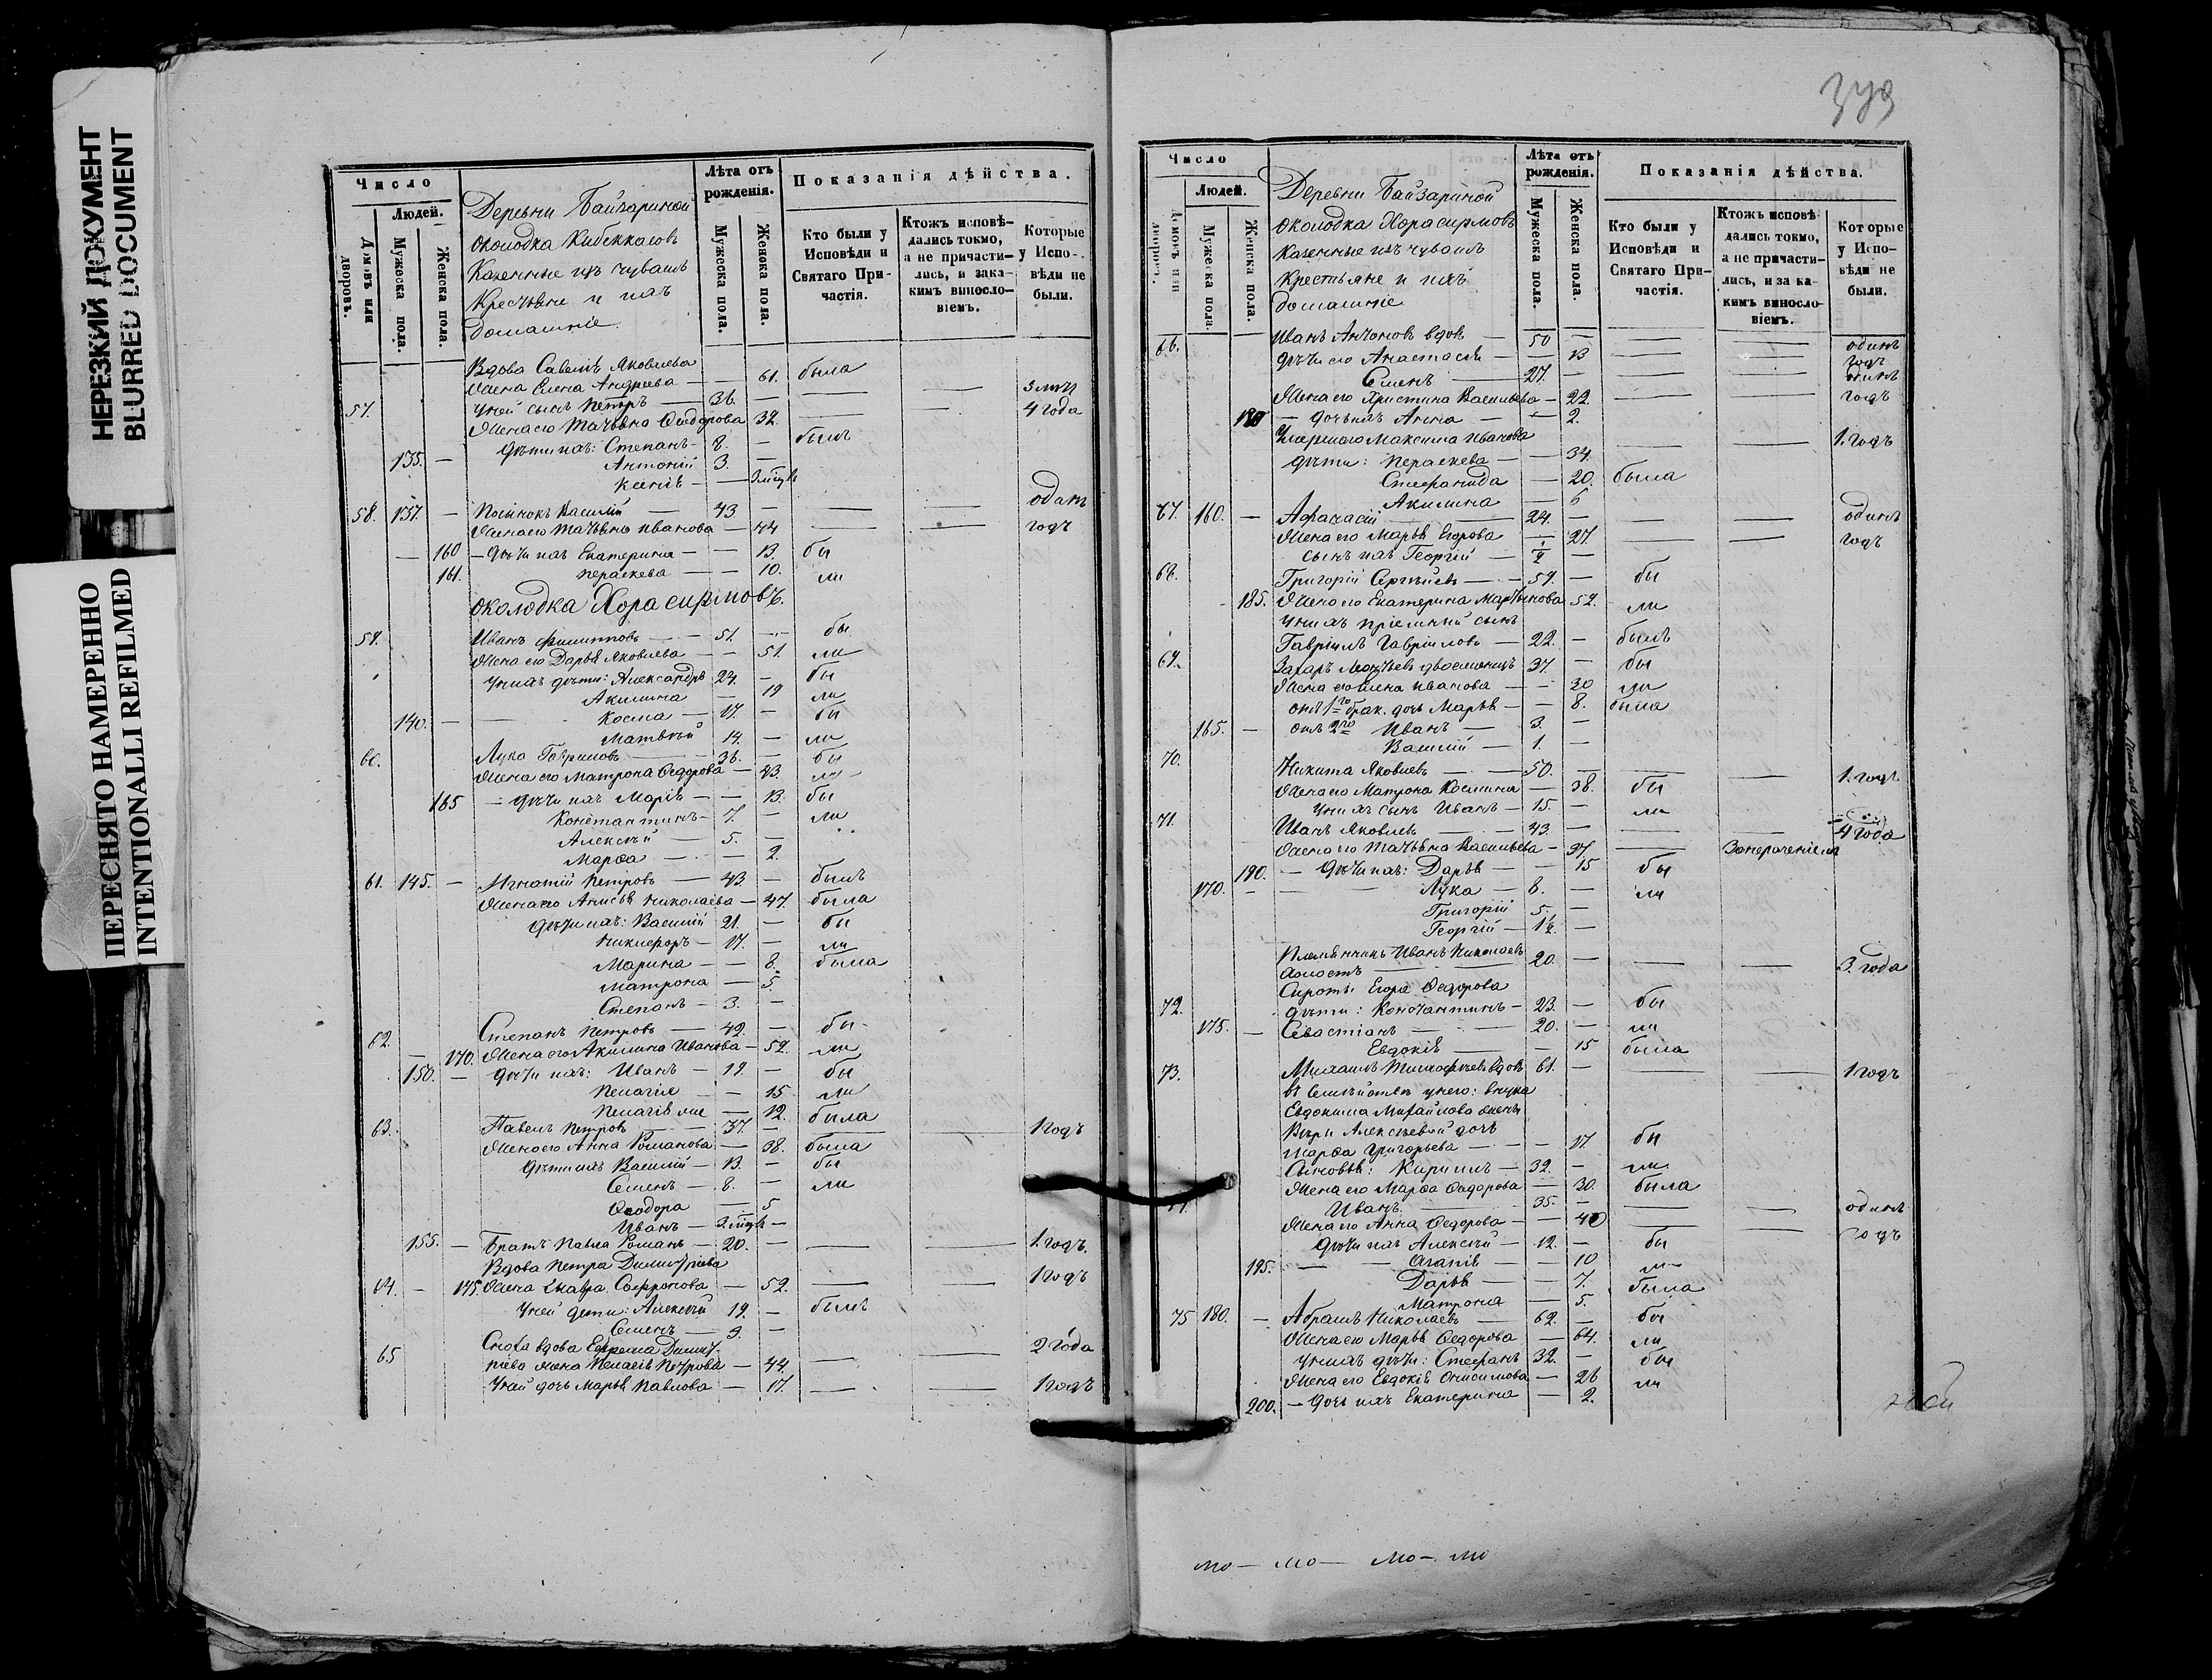 НЕРЕЗКИЙ ДОКУМЕНТ
BLURRED DOCUMENT
ПЕРЕСНЯТО НАМЕРЕННО
INTENTIONALLI REFILMED
Число
Людей.
Домовъ или дворовъ.
Мужеска пола.
Женска пола.
Деревни Байзариной
околодка
Казенные изъ чувашъ
Крестьяне и ихъ
домашніе.
Лѣта отъ рожденія.
Мужеска пола.
Женска пола.
Показанія дѣйства.
Кто были у Исповѣди и Святаго Причастія.
Ктожъ исповѣдались токмо, а не причастились, и за какимъ винословіемъ.
Которые у Исповѣди не были.
Вдова Яковлева
жена Елена Андреева — — 61. была
57. У ней сынъ Петръ — 36. —
Жена его Татьяна Ѳеодорова 32. — — 4 года
дѣти ихъ: Степанъ — 8. — былъ
135. — Антоній 3. —
Ксенія —
58. 137. — Василій — 43. — — — одинъ
Жена его Татьяна Иванова — 44 — — годъ
— 160 — дѣти ихъ Екатерина — — 13. бы
161. Параскева — — 10. ли
околодка Хорасирмовъ.
59. Иванъ Филипповъ — 51. — бы
Жена его Дарья Яковлева — — 51. ли
У нихъ дѣти: Александръ 24. — бы
Акилина — 19 ли
140. — — Косма — 17. — бы
Матвѣй 14. — ли
60. Лука Гавриловъ — 36. — бы
Жена его Матрона Ѳедорова — 43. ли
165 — дѣти ихъ Марія — — 13. бы
Константинъ — 7. — ли
Алексѣй — 5. —
Марѳа — — 2.
61. 145. — Игнатій Петровъ — 43. — былъ
Жена его Анисья Николаева — 47. была
дѣти ихъ: Василій 21. — бы
Никифоръ — 17. — ли
Марина — — 8. была
Матрона — 5.
Степанъ — 3. —
62. Степанъ Петровъ — 42. — бы
— 170. Жена его Акилина Иванова — 52. ли
150. — дѣти ихъ: Иванъ — 19. — бы
Пелагія — 15 ли
Пелагія — 12. была
63. Павелъ Петровъ — 37. — — — 1 годъ
Жена его Анна Романова — 38. была
дѣти ихъ Василій — 13. — бы
Семенъ — 8. — ли
Ѳеодора — 5
Иванъ —
155. — Братъ Павла Романъ — 20. — — — 1. годъ.
Вдова Петра Димитріева
64. — 175. жена Мавра Софронова — 52. — — 1 годъ
У ней дѣти: Алексѣй 19. — былъ
Семенъ — 9. —
65 Сноха вдова Ефрема Димит-
ріева жена Пелагія Петрова — 44. — — 2 года
У ней дочь Марья Павлова — 17. — — 1 годъ
Число
Людей.
Домовъ или дворовъ.
Мужеска пола.
Женска пола.
Деревни Байзариной
околодка Хорасирмовъ
Казенные изъ чувашъ
Крестьяне и ихъ
домашніе
Лѣта отъ рожденія.
Мужеска пола.
Женска пола.
Показанія дѣйства.
Кто были у Исповѣди и Святаго Причастія.
Ктожъ исповѣдались токмо, а не причастились, и за какимъ винословіемъ.
Которые у Исповѣди не были.
66. Иванъ Антоновъ вдовъ — 50 — — — одинъ
дѣти его Анастасія — — 13 — — годъ
Семенъ — 27. — — — одинъ
Жена его Христина Васильева — 22. — — годъ
180 — дочь ихъ Анна — — 2.
Умершаго Максима Иванова — — 1. годъ
дѣти: Параскева — — 34.
Стефанида — 20. была
Акилина — 6
67. 160. — Аѳанасій — 24. — — — одинъ
Жена его Марья Егорова — 27 — — годъ
сынъ ихъ Георгій — ½ —
68. Григорій Сергѣевъ — 59. — бы
185. Жена его Екатерина Мартынова 52. ли
У нихъ пріемный сынъ
Гавріилъ Гавріиловъ — 22. — былъ
69. Захаръ 37. — бы
Жена его Иванова — — 30 ли
отъ 1го брак. дочь Марья — — 8. была
165. — отъ 2го Иванъ — 3. —
Василій — 1. —
70. Никита Яковлевъ — 50. — — — 1. годъ
Жена его Матрона Космина — 38. бы
У нихъ сынъ Иванъ — 15. — ли
71. Иванъ Яковлевъ — 43. — — — 4 года
Жена его Татьяна Васильева — 37 —
190. — дѣти ихъ: Дарья — 15 бы
170. — — Лука — 8. — ли
Григорій 5. —
Георгій — 1½. —
Племянникъ Иванъ Николаевъ
холостъ — 20. — — — 3. года
Сироты Егора Ѳедорова
72. дѣти: Константинъ — 23. — бы
175. — Севастіанъ — 20. — ли
Евдокія — — 15 была
73. Михаилъ Тимоѳеевъ вдовъ 61. — — — 1 годъ
въ семействѣ у него: внука
Евдокима Михайлова жены
Вѣры Алексѣевой дочь
Марѳа Григорьева — — 17. бы
Сыновья: Кириллъ — 32. — ли
Жена его Марѳа Ѳедорова — 30. была
Иванъ. — 35. — — — одинъ
Жена его Анна Ѳедорова — — 40 — — годъ
дѣти ихъ Алексѣй — 12. — бы
195. — — Агапія — — 10 ли
Дарья — — 7. была
Матрона — 5.
75 180. — Абрамъ Николаевъ — 62. — бы
Жена его Марья Ѳедорова — 64. ли
У нихъ дѣти: Стефанъ 32. — бы
Жена его Евдокія Онисимова — 26 ли
200. — дочь ихъ Екатерина — 2.
мо — мо — мо — мо